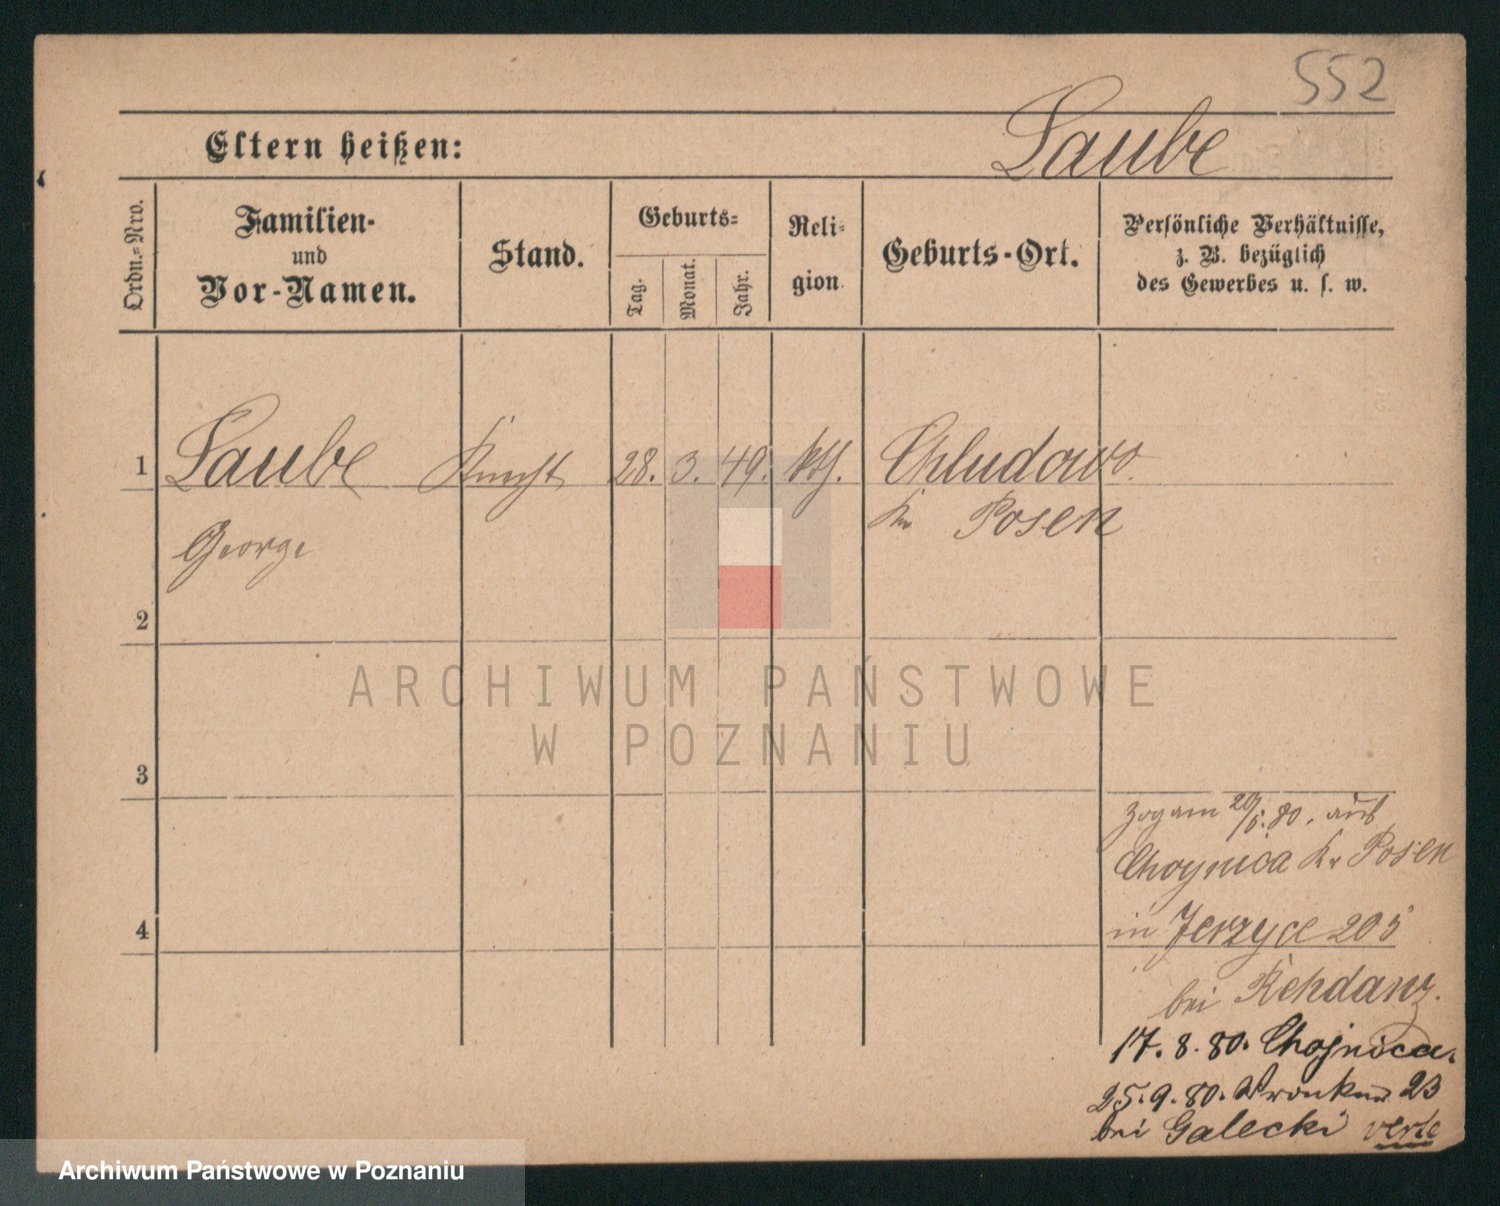 552
Eltern heißen:
Laube
Ordn.-Nro.
Familien-
und
Vor-Namen.
Stand.
Geburts-
Tag.
Monat.
Jahr.
Reli-
gion
Geburts-Ort.
Persönliche Verhältnisse,
z. B. bezüglich
des Gewerbes u. s. w.
1 Laube Knecht 28. 3. 49. kth. Chludowo
Kr Posen
George
2
3
4
zog am 20/5. 80. aus
Choynica Kr Posen
in Jerzyce 205
bei Rehdanz.
17. 8. 80. Chojnica.
25. 9. 80. Wronker 23
bei Galecki verte
ARCHIWUM PAŃSTWOWE
W POZNANIU
Archiwum Państwowe w Poznaniu